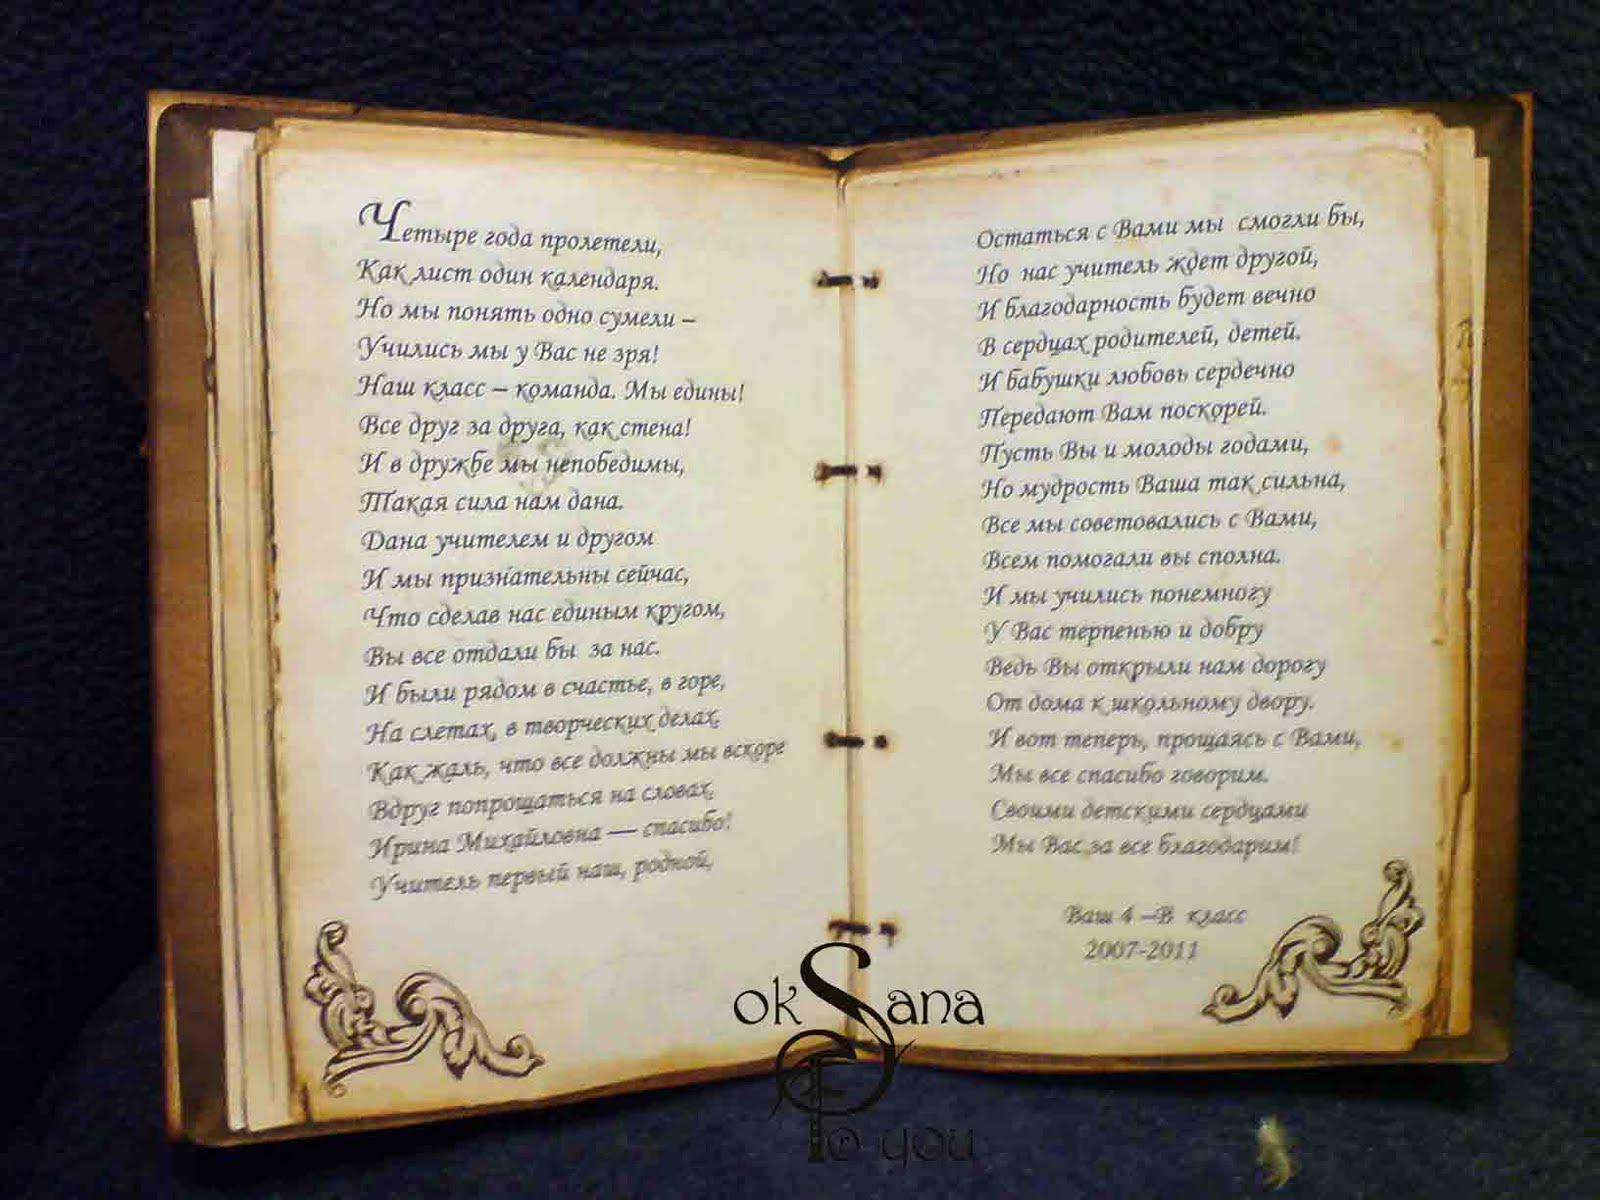 Четыре года пролетели,
Как лист один календаря.
Но мы понять одно сумели –
Учились мы у Вас не зря!
Наш класс – команда. Мы едины!
Все друг за друга, как стена!
И в дружбе мы непобедимы,
Такая сила нам дана.
Дана учителем и другом
И мы признательны сейчас,
Что сделав нас единым кругом,
Вы все отдали бы за нас.
И были рядом в счастье, в горе,
На слетах, в творческих делах,
Как жаль, что все должны мы вскоре
Вдруг попрощаться на словах,
Ирина Михайловна — спасибо!
Учитель первый наш, родной,
Остаться с Вами мы смогли бы,
Но нас учитель ждет другой,
И благодарность будет вечно
В сердцах родителей, детей.
И бабушки любовь сердечно
Передают Вам поскорей.
Пусть Вы и молоды годами,
Но мудрость Ваша так сильна,
Все мы советовались с Вами,
Всем помогали вы сполна.
И мы учились понемногу
У Вас терпенью и добру
Ведь Вы открыли нам дорогу
От дома к школьному двору.
И вот теперь, прощаясь с Вами,
Мы все спасибо говорим.
Своими детскими сердцами
Мы Вас за все благодарим!
Ваш 4 –В класс
2007-2011
okSana
For you